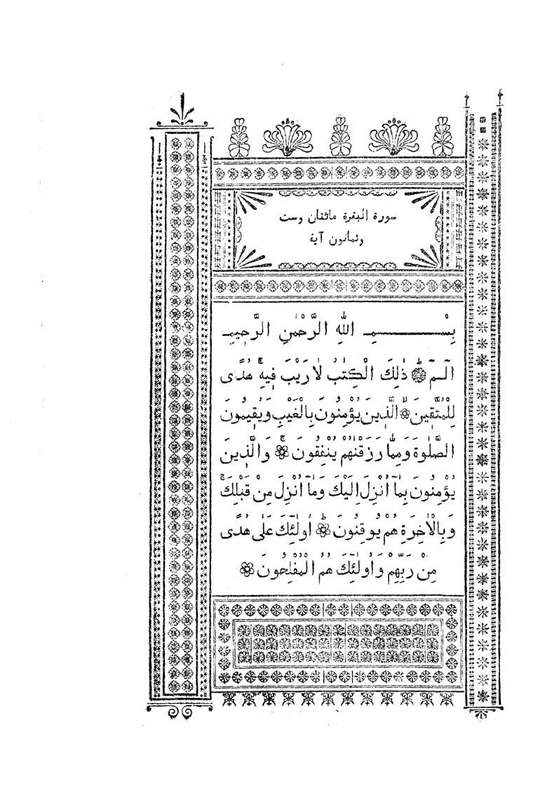 سورة البقرة مائتان وست
وثمانون آية
بِسْــــــــمِ اللهِ الرَّحْمٰنِ الرَّحِيمِ
الٓمٓ ۞ ذٰلِكَ الْكِتَابُ لَا رَيْبَ فِيهِ ۚ هُدًى
لِلْمُتَّقِينَ ۞ الَّذِينَ يُؤْمِنُونَ بِالْغَيْبِ وَيُقِيمُونَ
الصَّلٰوةَ وَمِمَّا رَزَقْنَاهُمْ يُنْفِقُونَ ۞ وَالَّذِينَ
يُؤْمِنُونَ بِمَٓا اُنْزِلَ اِلَيْكَ وَمَٓا اُنْزِلَ مِنْ قَبْلِكَ ۚ
وَبِالْاٰخِرَةِ هُمْ يُوقِنُونَ ۞ اُولٰٓئِكَ عَلٰى هُدًى
مِنْ رَبِّهِمْ وَاُولٰٓئِكَ هُمُ الْمُفْلِحُونَ ۞